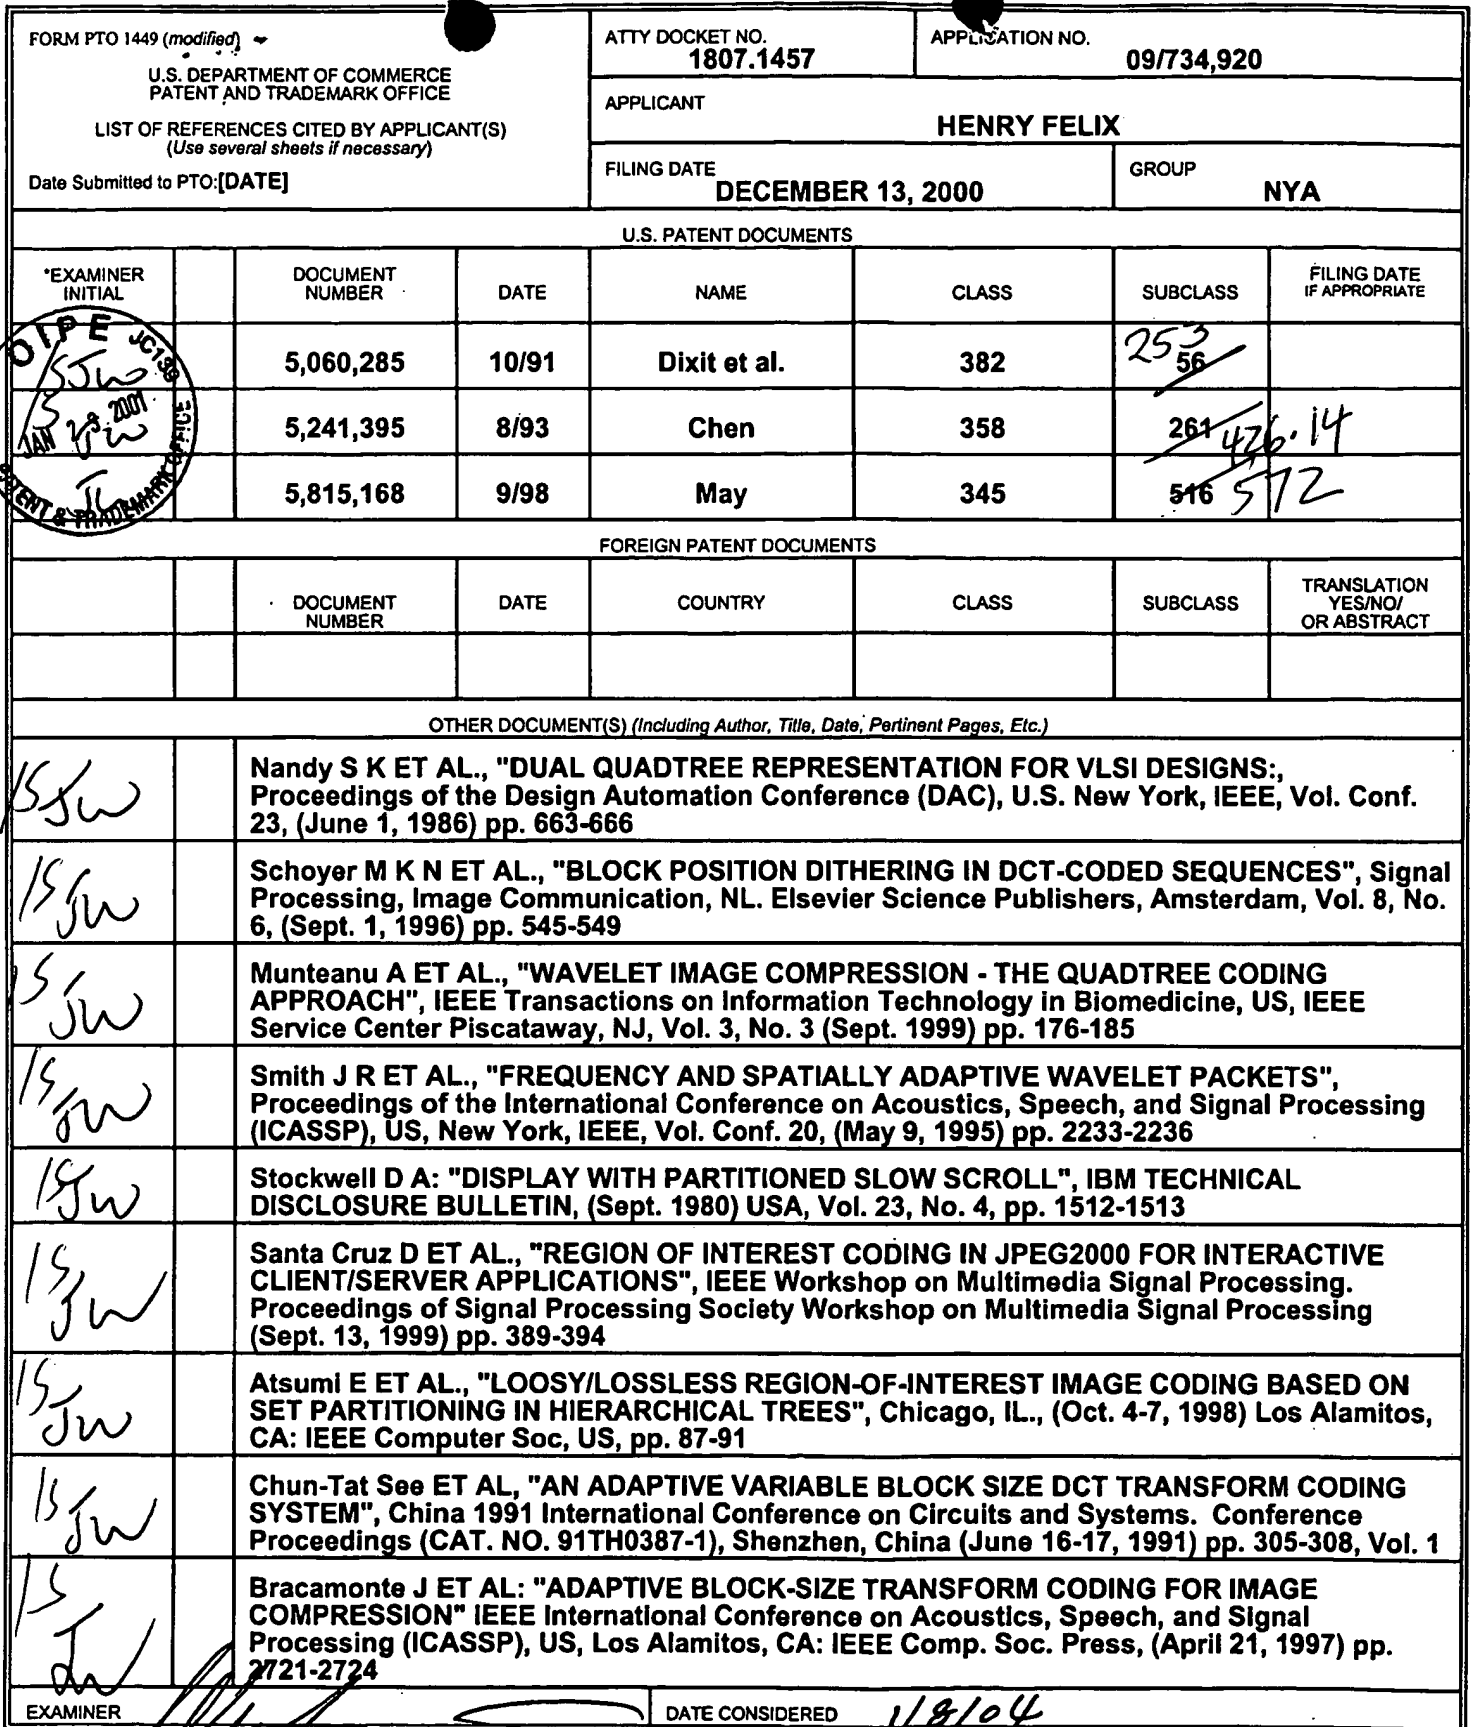 FORM PTO 1449 (modified)
U.S. DEPARTMENT OF COMMERCE
PATENT AND TRADEMARK OFFICE
LIST OF REFERENCES CITED BY APPLICANT(S)
(Use several sheets if necessary)
Date Submitted to PTO:[DATE]
ATTY DOCKET NO.
1807.1457
APPLICATION NO.
09/734,920
APPLICANT
HENRY FELIX
FILING DATE
DECEMBER 13, 2000
GROUP
NYA
U.S. PATENT DOCUMENTS
*EXAMINER
INITIAL
DOCUMENT
NUMBER
DATE
NAME
CLASS
SUBCLASS
FILING DATE
IF APPROPRIATE
OIPE JC139
JAN 23 2001
PATENT & TRADEMARK OFFICE
5,060,285 10/91 Dixit et al. 382 56 253
5,241,395 8/93 Chen 358 261 426.14
5,815,168 9/98 May 345 516 572
FOREIGN PATENT DOCUMENTS
DOCUMENT
NUMBER
DATE
COUNTRY
CLASS
SUBCLASS
TRANSLATION
YES/NO/
OR ABSTRACT
OTHER DOCUMENT(S) (Including Author, Title, Date, Pertinent Pages, Etc.)
Nandy S K ET AL., "DUAL QUADTREE REPRESENTATION FOR VLSI DESIGNS:,
Proceedings of the Design Automation Conference (DAC), U.S. New York, IEEE, Vol. Conf.
23, (June 1, 1986) pp. 663-666
Schoyer M K N ET AL., "BLOCK POSITION DITHERING IN DCT-CODED SEQUENCES", Signal
Processing, Image Communication, NL. Elsevier Science Publishers, Amsterdam, Vol. 8, No.
6, (Sept. 1, 1996) pp. 545-549
Munteanu A ET AL., "WAVELET IMAGE COMPRESSION - THE QUADTREE CODING
APPROACH", IEEE Transactions on Information Technology in Biomedicine, US, IEEE
Service Center Piscataway, NJ, Vol. 3, No. 3 (Sept. 1999) pp. 176-185
Smith J R ET AL., "FREQUENCY AND SPATIALLY ADAPTIVE WAVELET PACKETS",
Proceedings of the International Conference on Acoustics, Speech, and Signal Processing
(ICASSP), US, New York, IEEE, Vol. Conf. 20, (May 9, 1995) pp. 2233-2236
Stockwell D A: "DISPLAY WITH PARTITIONED SLOW SCROLL", IBM TECHNICAL
DISCLOSURE BULLETIN, (Sept. 1980) USA, Vol. 23, No. 4, pp. 1512-1513
Santa Cruz D ET AL., "REGION OF INTEREST CODING IN JPEG2000 FOR INTERACTIVE
CLIENT/SERVER APPLICATIONS", IEEE Workshop on Multimedia Signal Processing.
Proceedings of Signal Processing Society Workshop on Multimedia Signal Processing
(Sept. 13, 1999) pp. 389-394
Atsumi E ET AL., "LOOSY/LOSSLESS REGION-OF-INTEREST IMAGE CODING BASED ON
SET PARTITIONING IN HIERARCHICAL TREES", Chicago, IL., (Oct. 4-7, 1998) Los Alamitos,
CA: IEEE Computer Soc, US, pp. 87-91
Chun-Tat See ET AL, "AN ADAPTIVE VARIABLE BLOCK SIZE DCT TRANSFORM CODING
SYSTEM", China 1991 International Conference on Circuits and Systems. Conference
Proceedings (CAT. NO. 91TH0387-1), Shenzhen, China (June 16-17, 1991) pp. 305-308, Vol. 1
Bracamonte J ET AL: "ADAPTIVE BLOCK-SIZE TRANSFORM CODING FOR IMAGE
COMPRESSION" IEEE International Conference on Acoustics, Speech, and Signal
Processing (ICASSP), US, Los Alamitos, CA: IEEE Comp. Soc. Press, (April 21, 1997) pp.
2721-2724
EXAMINER
DATE CONSIDERED 1/8/04